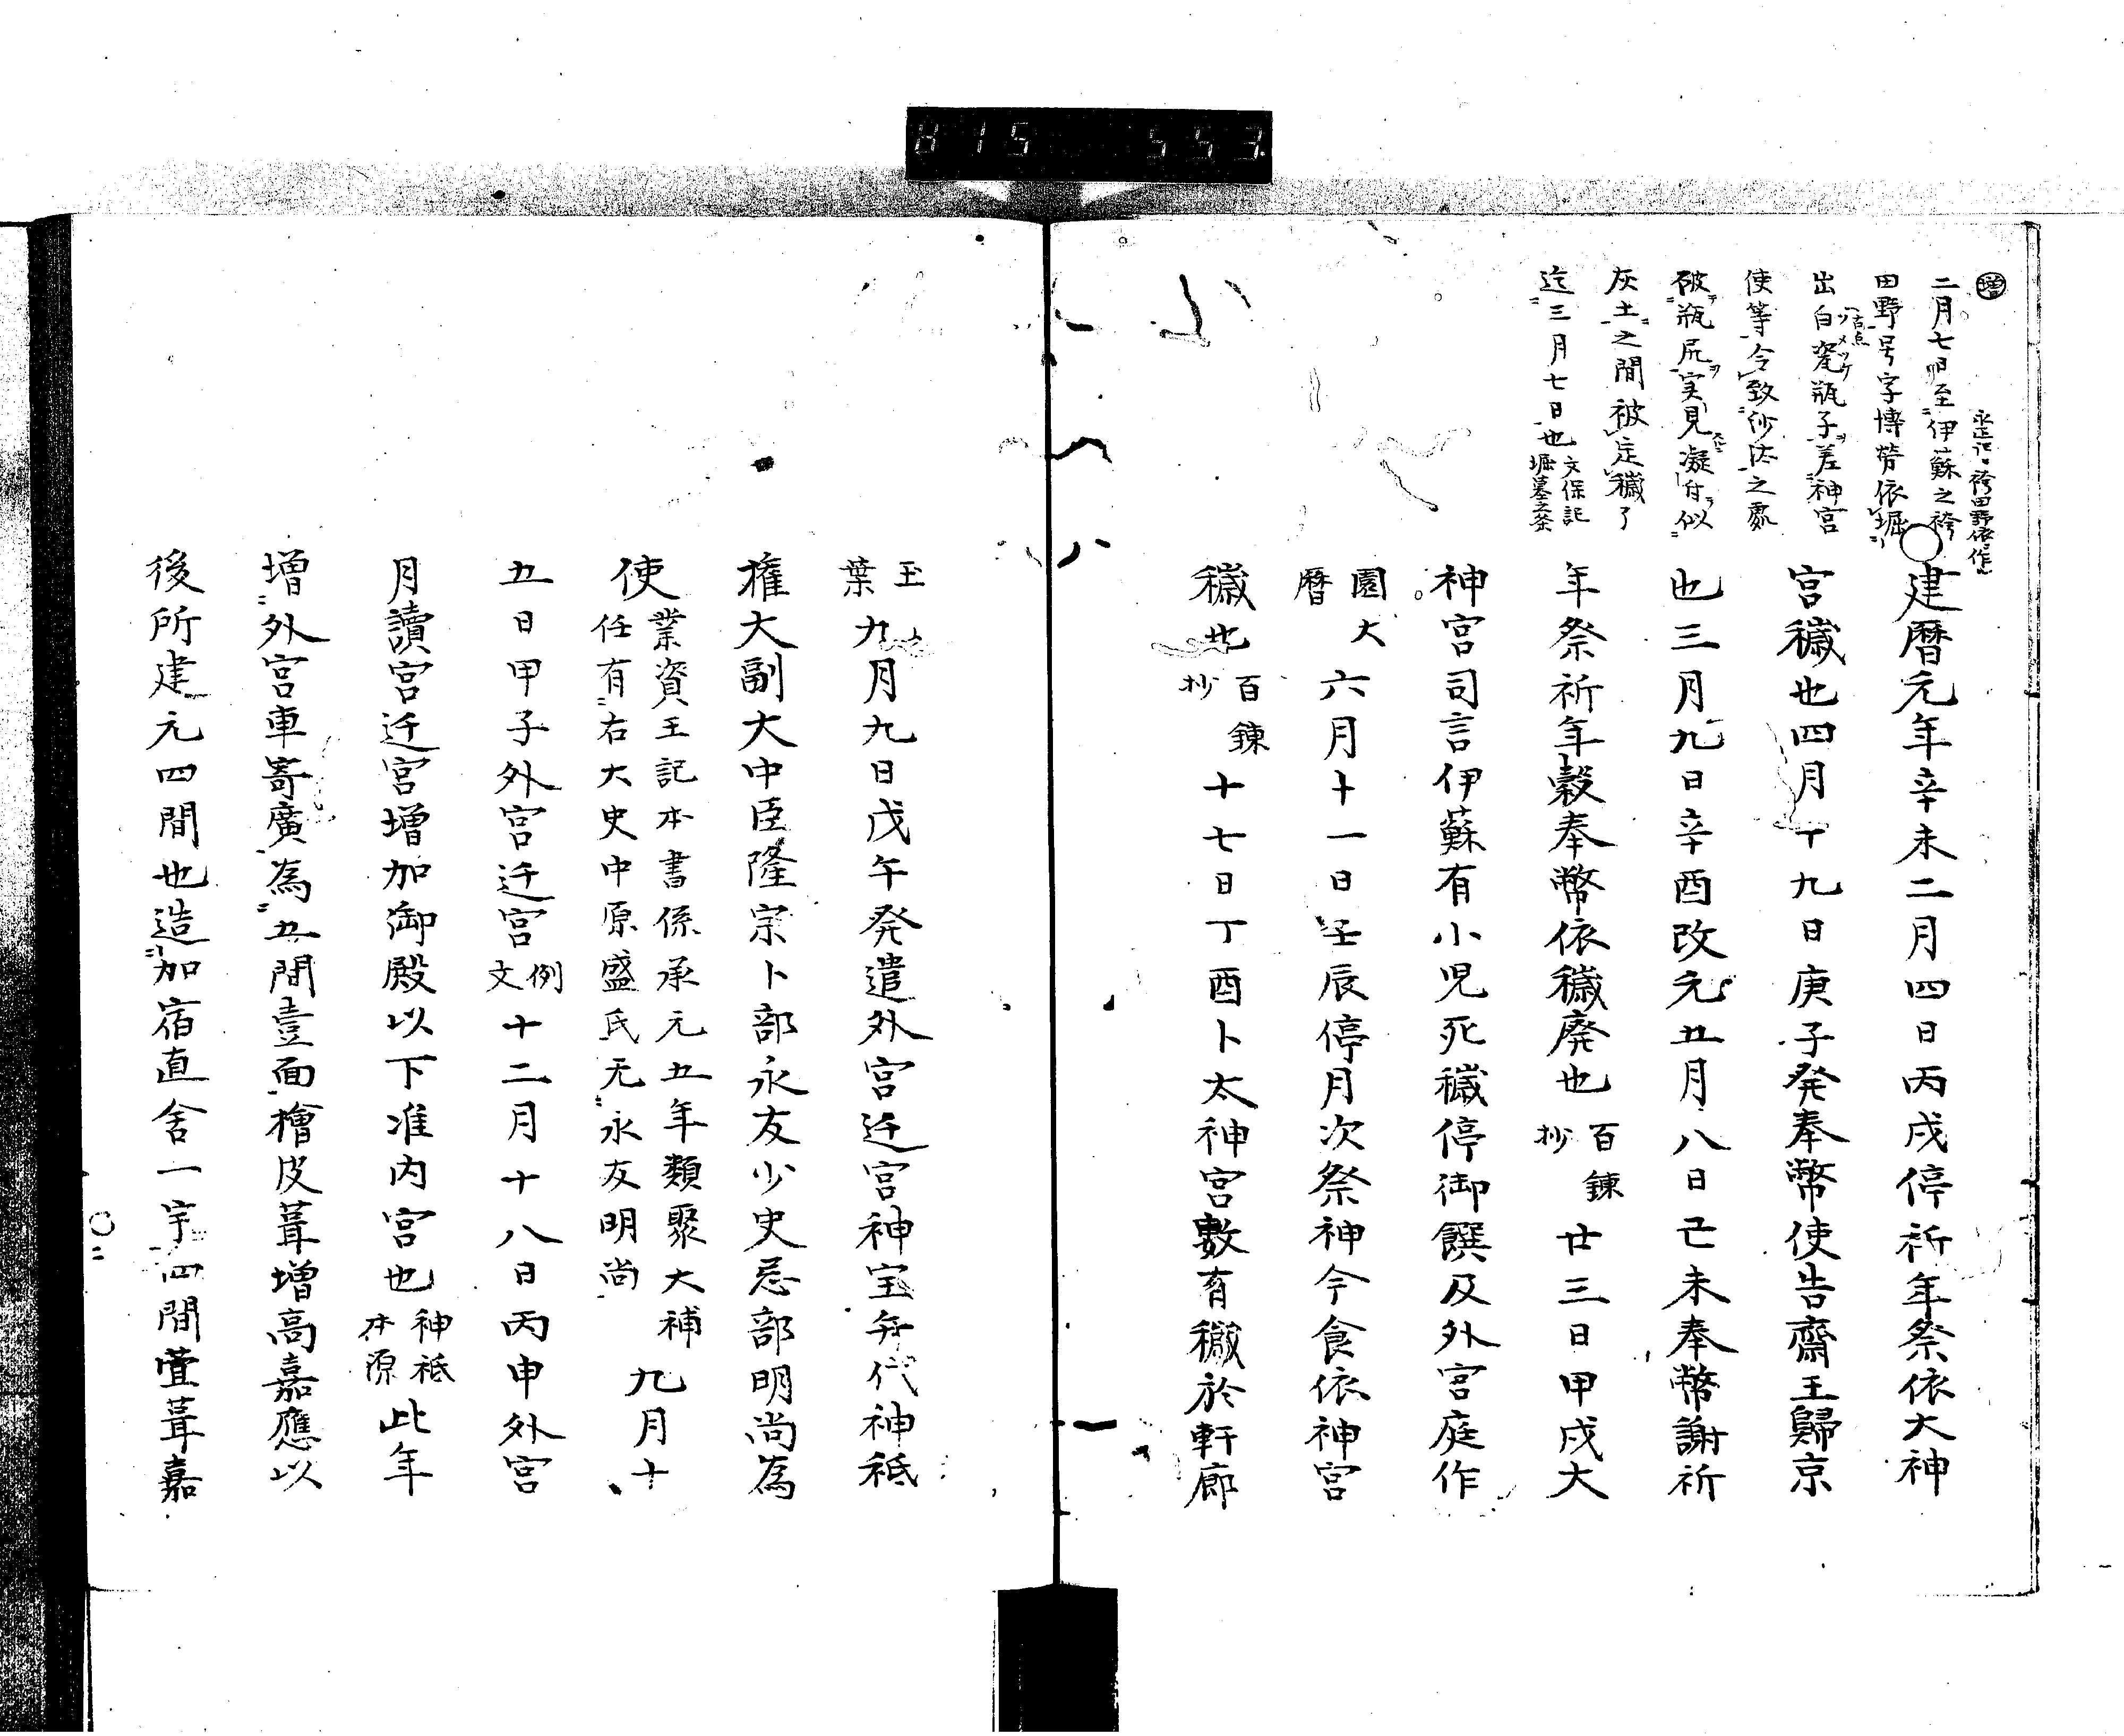 815 553
増
二月七日至伊蘇之袴
田野号字博労依堀
出白瓷瓶子差神宮
使等令致沙汰之處
破瓶尻実見凝付似
灰土之間被定穢了
迄三月七日也文保記
堀墓之条
建暦元年辛未二月四日丙戌停祈年祭依大神
宮穢也四月十九日庚子発奉幣使告齋王歸京
也三月九日辛酉改元五月八日己未奉幣謝祈
年祭祈年穀奉幣依穢廃也百鍊抄廿三日甲戌大
神宮司言伊蘇有小児死穢停御饌及外宮庭作
園大暦六月十一日壬辰停月次祭神今食依神宮
穢也百鍊抄十七日丁酉卜太神宮數有穢於軒廊
玉葉九月九日戊午発遣外宮迁宮神宝弁代神祇
権大副大中臣隆宗卜部永友少史忌部明尚為
使業資王記本書係承元五年類聚大補
任有右大史中原盛氏无永友明尚九月十
五日甲子外宮迁宮例文十二月十八日丙申外宮
月讀宮迁宮増加御殿以下准内宮也神祇本源此年
増外宮車寄廣為五間壹面檜皮葺増高嘉應以
後所建元四間也造加宿直舎一宇四間萱葺嘉